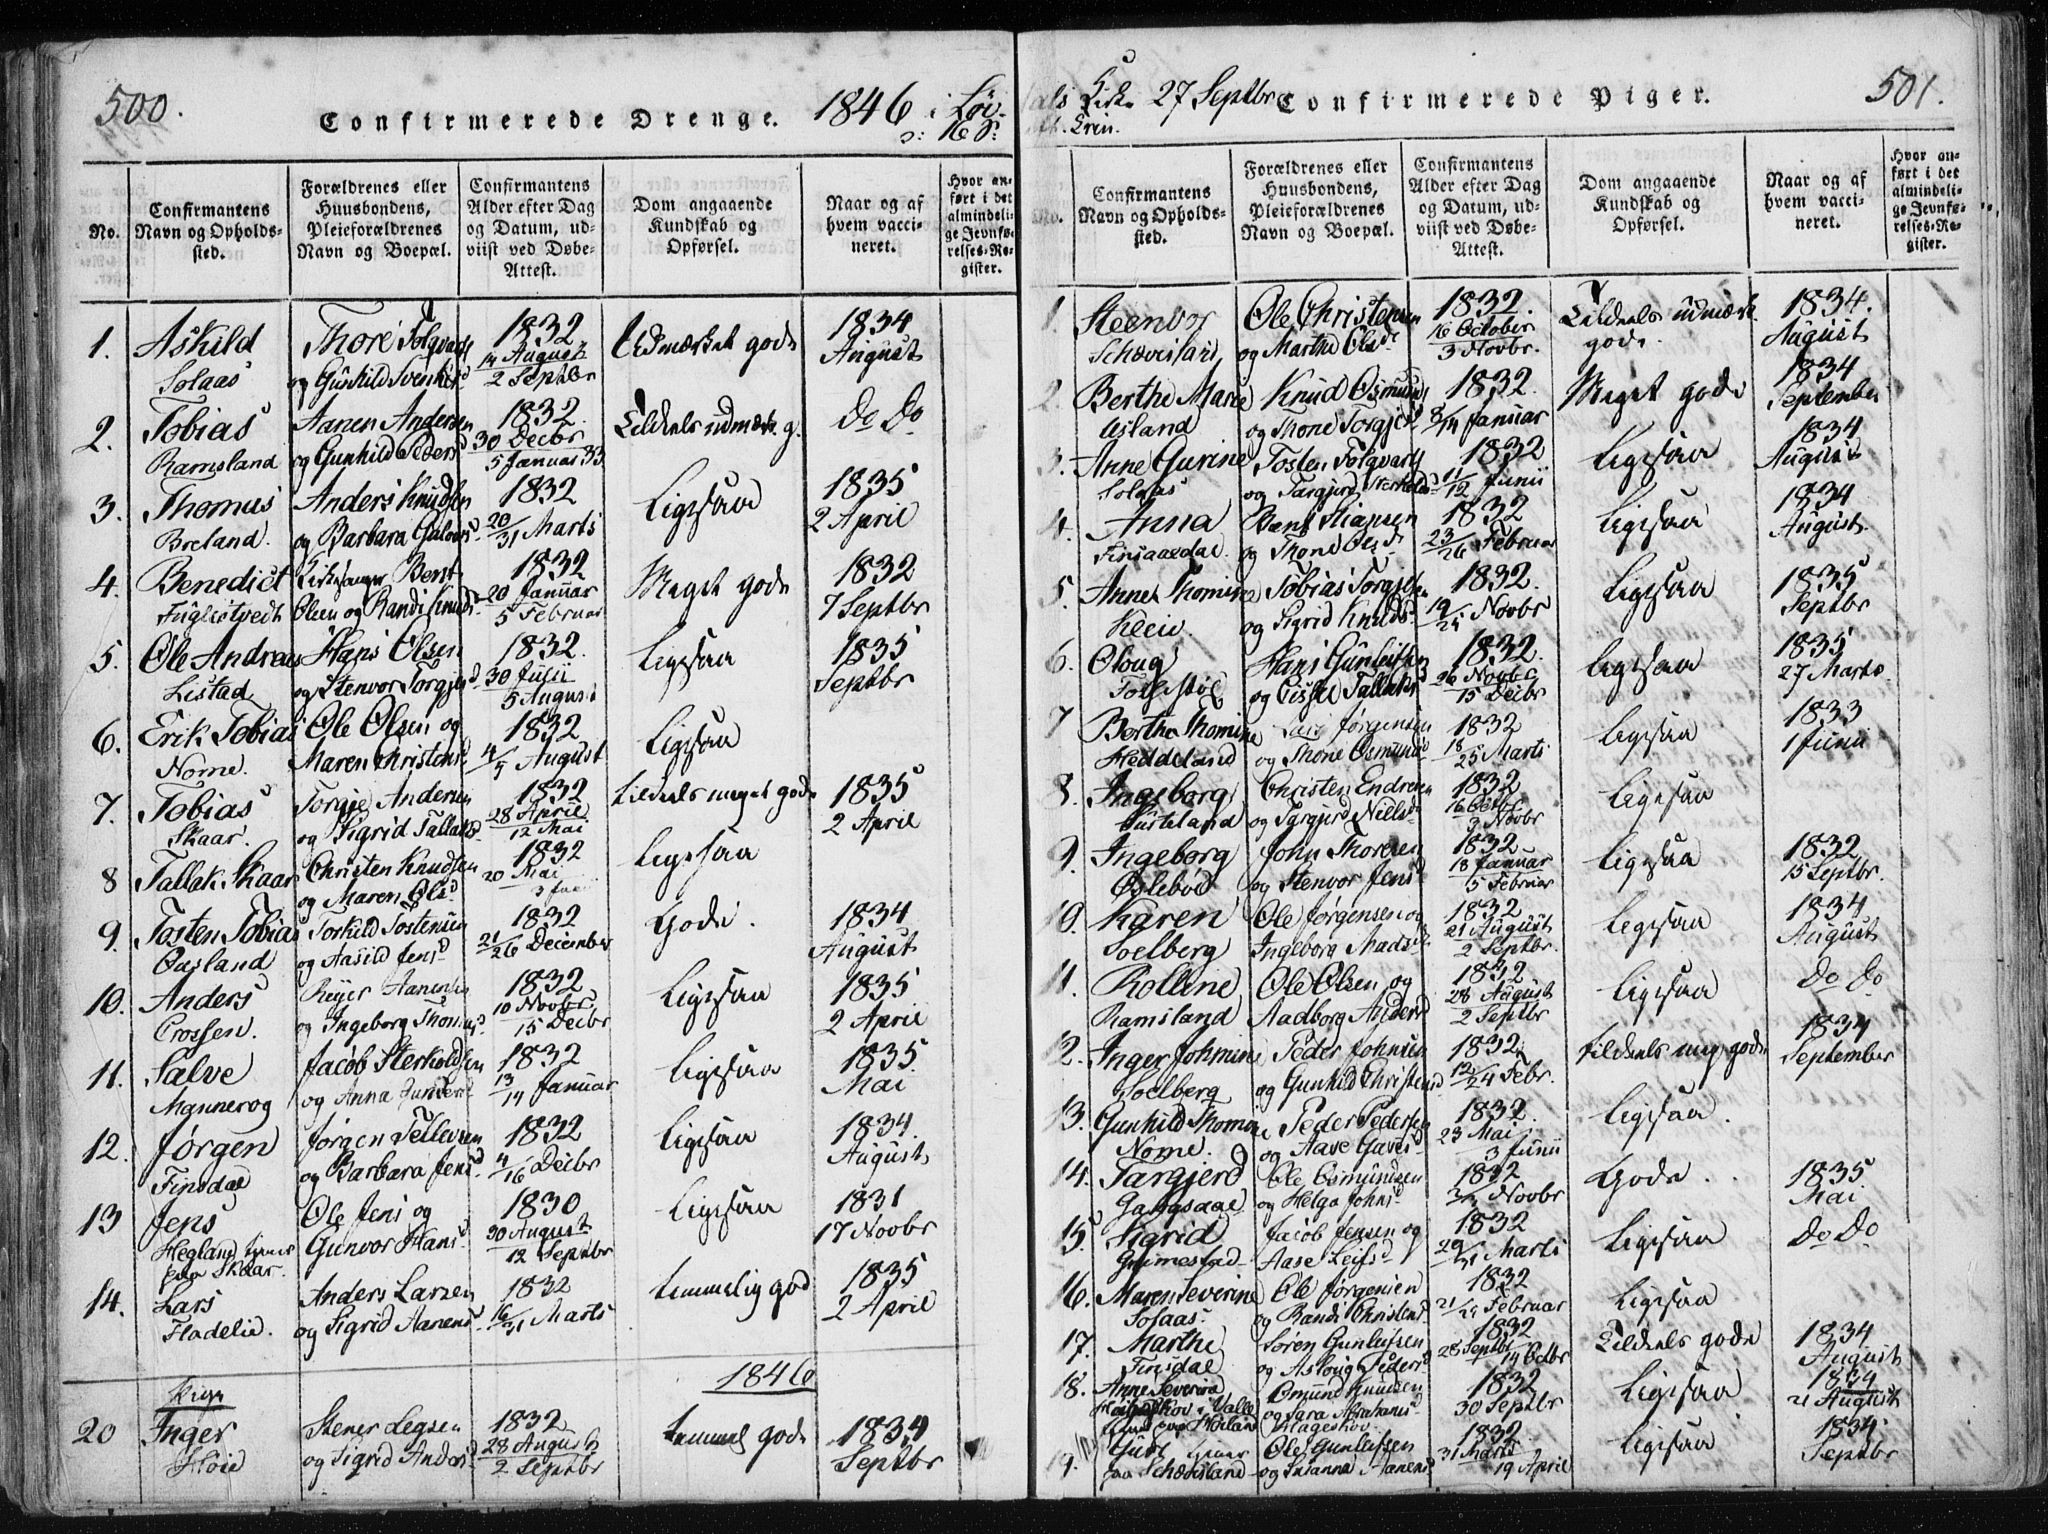 500.
Confirmerede Drenge.
1846 i Løv-
No.
Confirmantens Navn og Opholds-sted.
Forældrenes eller Huusbondens, Pleieforældrenes Navn og Boepæl.
Confirmantens Alder efter Dag og Datum, ud-viist ved Døbe-Attest.
Dom angaaende Kundskab og Opførsel.
Naar og af hvem vacci-neret.
Hvor an-ført i det almindeli-ge Jevnfø-relses-Re-gister.
1. Askild Thore Tolgvars 1832 Udmærket gode 1834
Solaas og Gunhild Svenkes 14 August 2 Septbr August
2. Tobias Aanen Andersen 1832 Tildeels udmærk. g. Do Do
Ramsland og Gunhild Peders 30 Decbr 5 Januar 33
3. Thomas Anders Knudsen 1832 Ligesaa 1835
Breland. og Barbara 20/31 Marts 2 April
4. Benedict Kirkesanger Bent 1832 Meget gode 1832
Fuglestvedt Olsen og Randi Knuds 20 Januar 5 Februar 7 Septbr
5. Ole Andreas Hans Olsen 1832. Ligesaa 1835
Listad og Stenvor Torgjes 30 Julii 5 August Septbr
6. Erik Tobias Ole Olsen og 1832 Ligesaa
Nome. Maren Christens 4/5 August
7. Tobias Torgje Andersen 1832 Tildeels meget gode 1835
Skaar. og Sigrid Tallaks 28 April 12 Mai 2 April
8 Tallak Skaar Christen Knudsen 1832 Ligesaa
og Maren Ols 20 Mai 3 Juni
9. Tosten Tobias Torkild Tostensen 1832 Gode. 1834
Øvesland og Aasild Jens 21/26 December August
10. Anders Reyer Aanensen 1832 Ligesaa 1835
Crossen. og Ingeborg Thomas 10 Novbr 15 Decbr 2 April
11. Salve Jacob Sterkoldsen 1832 Ligesaa 1835
Mannerog og Anna 13/14 Januar Mai
12. Jørgen Jørgen Tellevsen 1832 Ligesaa 1834
Finsdal og Barbara Jens 4/16 Decbr August
13 Jens Ole Jens og 1830 Ligesaa 1831
Hegland tjener paa Skaar. Gunvor Hans 30 August 12 Septbr 17 Novbr
14. Lars Anders Larsen 1832 temmelig god 1835
Fladelie. og Sigrid Aanens 16/31 Marts 2 April
1846
Pige
20 Inger Stener 1832 temmel gode 1834
Høie og Sigrid Anders 28 August 2 Septbr Septbr
als Kirke 27 Septbr
Confirmerede Piger.
501.
No.
Confirmantens Navn og Opholds-sted.
Forældrenes eller Huusbondens, Pleieforældrenes Navn og Boepæl.
Confirmantens Alder efter Dag og Datum, ud-viist ved Døbe-Attest.
Dom angaaende Kundskab og Opførsel.
Naar og af hvem vacci-neret.
Hvor an-ført i det almindeli-ge Jevnfø-relses-Re-gister.
1. Steenvor Ole Christensen 1832. Tildeels udmærk. 1834.
og Marthe Olsd 16 October 3 Novbr. gode. August
2. Berthe Marie Knud Osmunds 1832. Meget gode 1834
Usland og Thone Torgjes 8/14 Januar September
3. Anne Gurine Tosten Tolgvars 1832 Ligesaa 1834
Solaas og Targjerd 11/12 Junii August
4. Anna Bent Hansen 1832 Ligesaa 1834
Finsaasdal og Thone Olsd 23/26 Februar August
5. Anne Thomine Tobias Torgjelsen 1832. Ligesaa 1835
Kleiv. og Sigrid Knuds 19/25 Novbr Septbr
6. Oloug Hans Gunleifsen 1832. Ligesaa 1835
og Tallaks 26 Novbr 15 Decbr 27 Marts
7 Berthe Thomine Lars Jørgensen 1832 Ligesaa 1833
Heddeland og Thone Osmunds 18/25 Marts 1 Junii
8. Ingeborg Christen Endresen 1832 Ligesaa
og Targjerd Niels 16 Octbr 3 Novbr
9. Ingeborg John Thoresen 1832 Ligesaa 1832
Øslebøe og Stenvor Jens 18 Januar 5 Februar 15 Septbr.
10. Karen Ole Jørgensen og 1832 Ligesaa 1834
Soelberg Ingeborg Mads 21 August 2 Septbr. August
11. Rolline Ole Olsen og 1832 Ligesaa Do Do
Ramsland Aadborg Anders 28 August 2 Septbr
12. Inger Johmine Peder Johnsen 1832. tildeels meg. gode 1834
Soelberg og Gunhild Christens 12/24 Febr. September
13. Gunhild Thomine Peder Pedersen 1832. Ligesaa.
Nome. og Aase 23 Mai 3 Junii
14. Targjerd Ole Osmundsen 1832 Gode. 1835
Gangsaae og Helga Johns Novbr Mai
15. Sigrid Jacob Jensen og 1832 Ligesaa Do Do
Grimestad Aase Leifs 29/31 Marts
16. Maren Severine Ole Jørgensen 1832 Ligesaa
Solaas. og Randi Christens Februar
17. Marthe Søren Gunleifsen 1832 Tildeels gode 1834
Finsdal og Asloug Peders 28 Septbr 14 Octbr August
18. Anne Severine Osmund Knudsen 1832 Ligesaa
Valle og Sara Abrahams 30 Septbr 21 August
19. Guri Ole Gunleifsen 1832. Ligesaa 1834
og Susanne Aanens 31 Marts 19 April Septbr